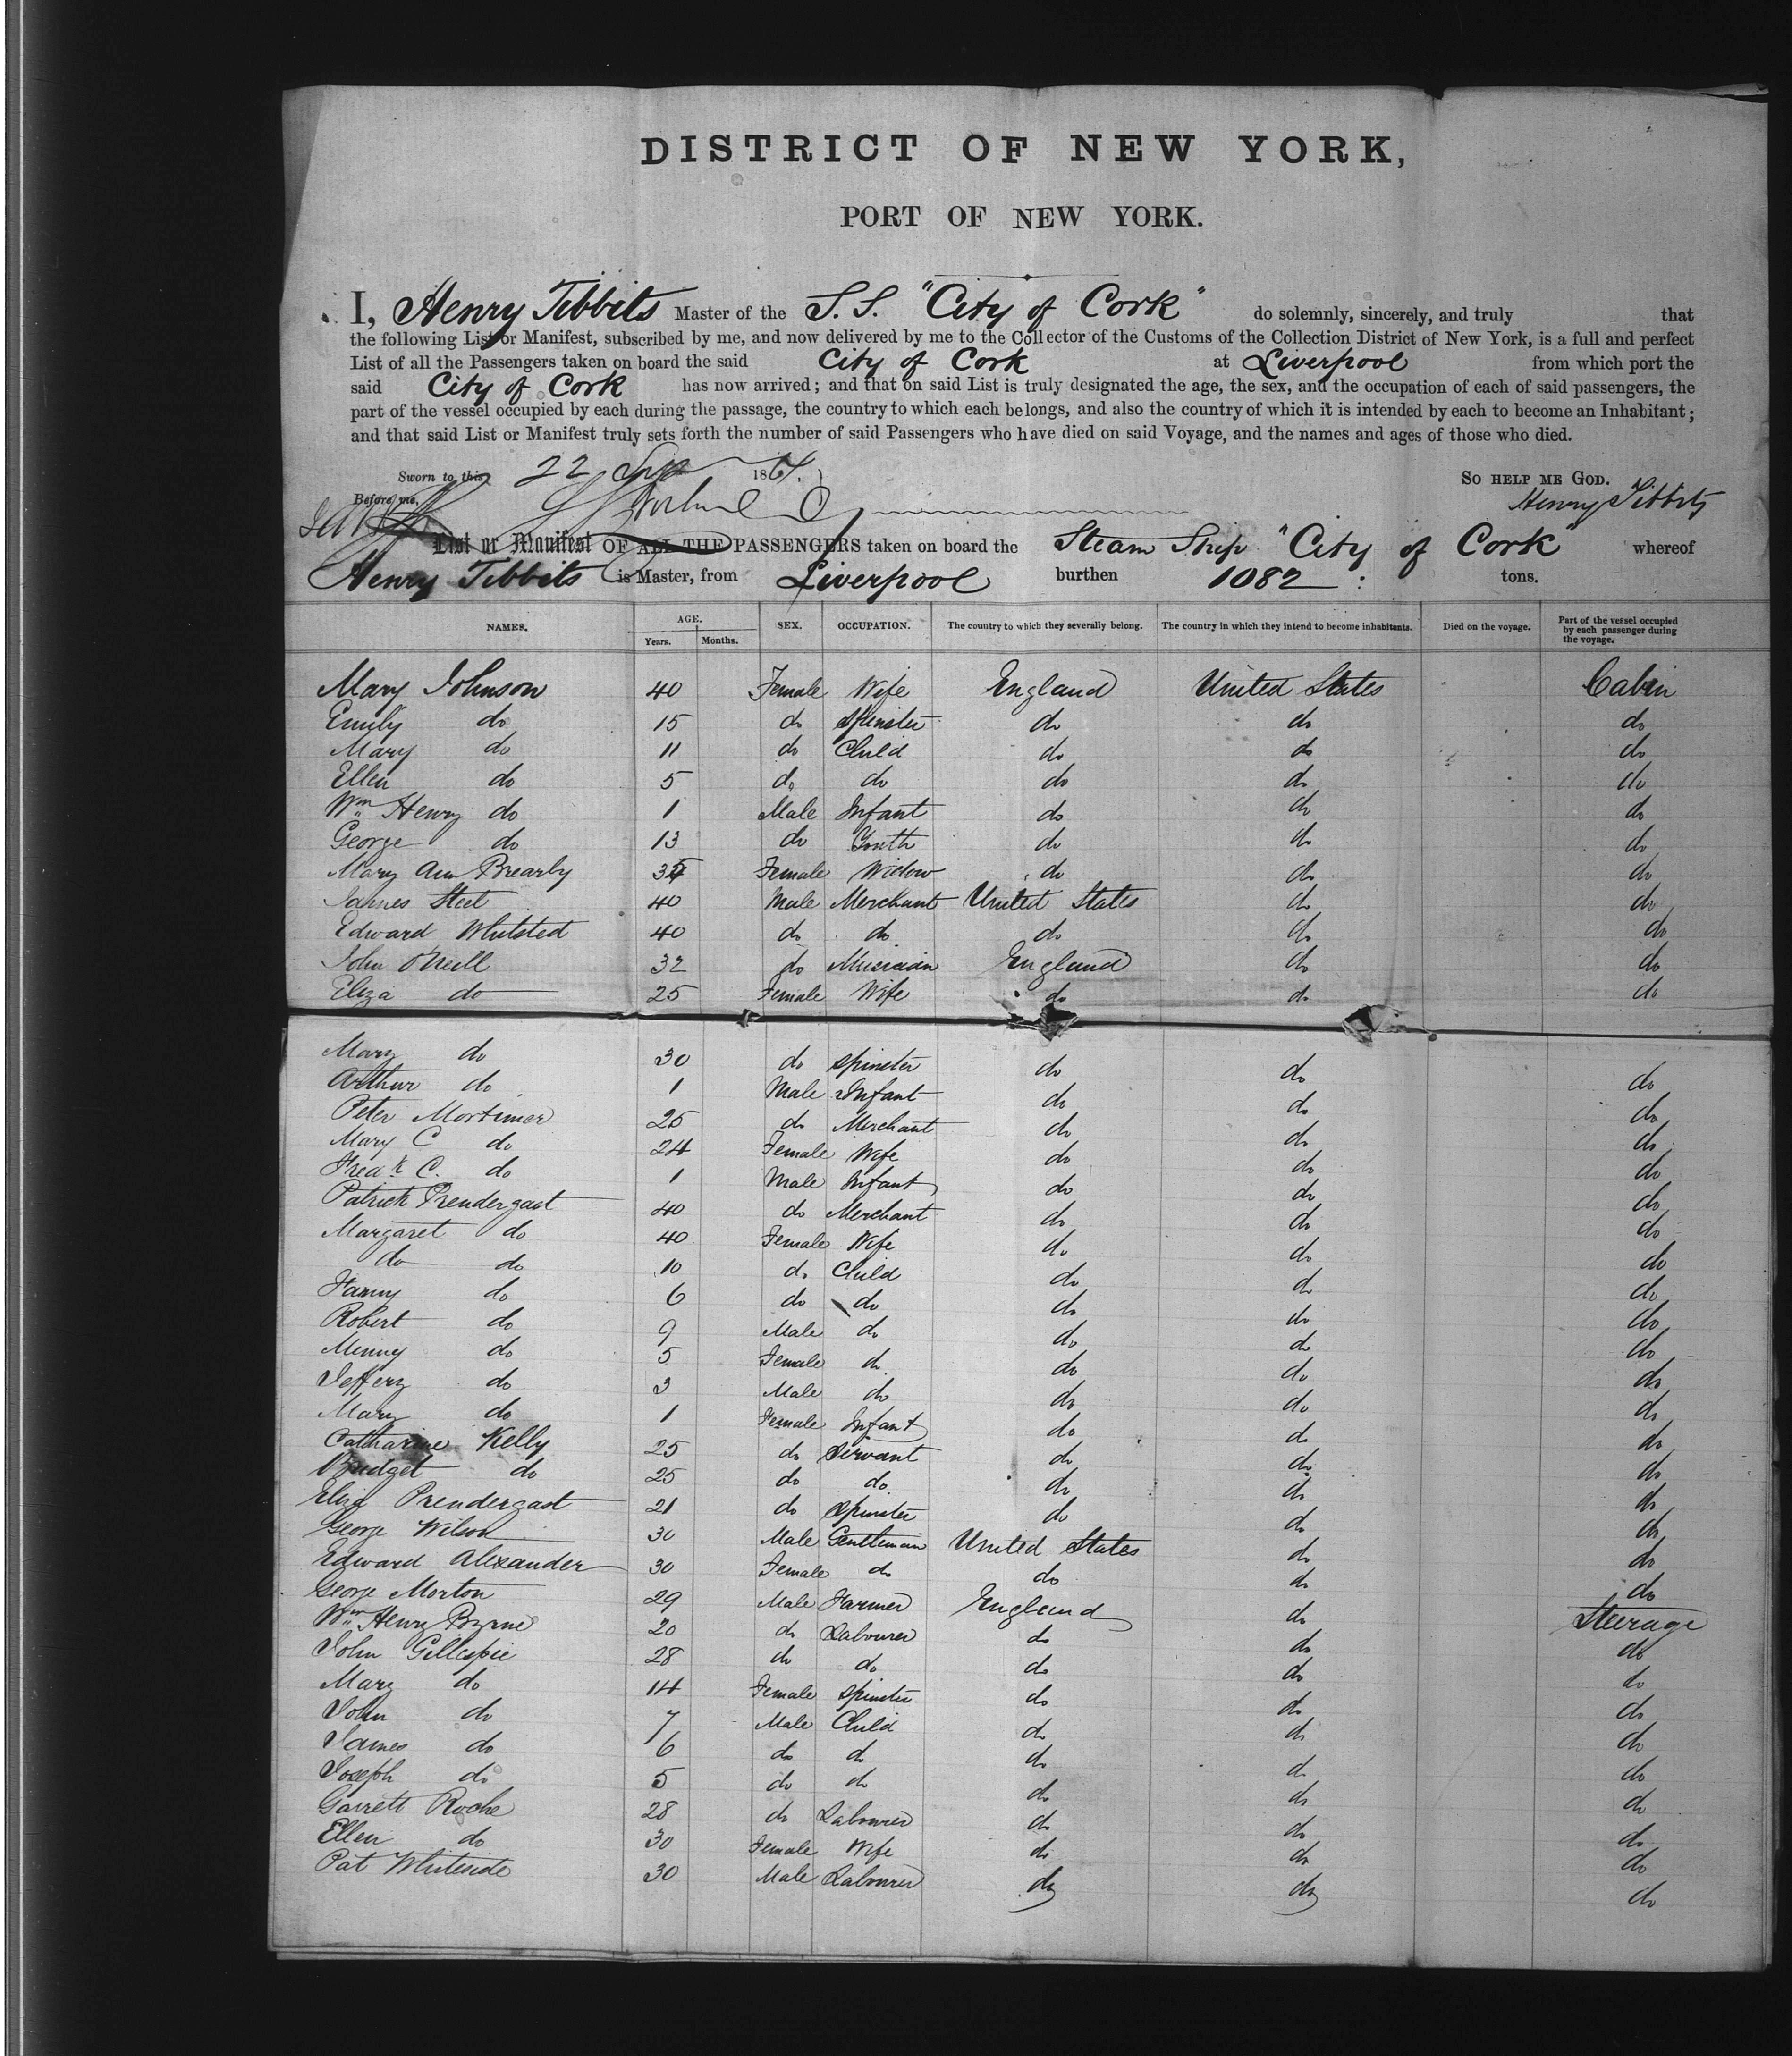 DISTRICT OF NEW YORK,
PORT OF NEW YORK.
I, Henry Tibbits Master of the S.S. "City of Cork" do solemnly, sincerely, and truly that
the following List or Manifest, subscribed by me, and now delivered by me to the Collector of the Customs of the Collection District of New York, is a full and perfect
List of all the Passengers taken on board the said City of Cork at Liverpool from which port the
said City of Cork has now arrived; and that on said List is truly designated the age, the sex, and the occupation of each of said passengers, the
part of the vessel occupied by each during the passage, the country to which each belongs, and also the country of which it is intended by each to become an Inhabitant;
and that said List or Manifest truly sets forth the number of said Passengers who have died on said Voyage, and the names and ages of those who died.
Sworn to this 22 Sep 1864.
SO HELP ME GOD.
Before me,
Henry Tibbits
List or Manifest OF ALL THE PASSENGERS taken on board the Steam Ship "City of Cork" whereof
Henry Tibbits is Master, from Liverpool burthen 1082 tons.
NAMES. AGE. Years. Months. SEX. OCCUPATION. The country to which they severally belong. The country in which they intend to become inhabitants. Died on the voyage. Part of the vessel occupied by each passenger during the voyage.
Mary Johnson 40 Female Wife England United States Cabin
Emily do 15 do Spinster do do do
Mary do 11 do Child do do do
Ellen do 5 do do do do do
Wm Henry do 1 Male Infant do do do
George do 13 do Youth do do do
Mary Ann Brearby Female Widow do do do
James Steel 40 Male Merchant United States do do
Edward Whitsted 40 do do do do do
John O'Neill 32 do Musician England do do
Eliza do 25 Female Wife do do do
Mary do 30 do Spinster do do do
Arthur do 1 Male Infant do do do
Peter Mortimer 25 do Merchant do do do
Mary C do 24 Female Wife do do do
Fredk C. do 1 Male Infant do do do
Patrick Prendergast 40 do Merchant do do do
Margaret do 40 Female Wife do do do
do do 10 do Child do do do
Fanny do 6 do do do do do
Robert do 9 Male do do do do
Menny do 5 Female do do do do
Jeffery do 3 Male do do do do
Mary do 1 Female Infant do do do
Catharine Kelly 25 do Servant do do do
Bridget do 25 do do do do do
Eliza Prendergast 21 do Spinster do do do
George Wilson 30 Male Gentleman United States do do
Edward Alexander 30 Female do do do do
George Morton 29 Male Farmer England do Steerage
Wm Henry Byrne 20 do Labourer do do do
John Gillespie 28 do do do do do
Mary do 14 Female Spinster do do do
John do 7 Male Child do do do
James do 6 do do do do do
Joseph do 5 do do do do do
Garrett Roche 28 do Labourer do do do
Ellen do 30 Female Wife do do do
Pat Whiteside 30 Male Labourer do do do